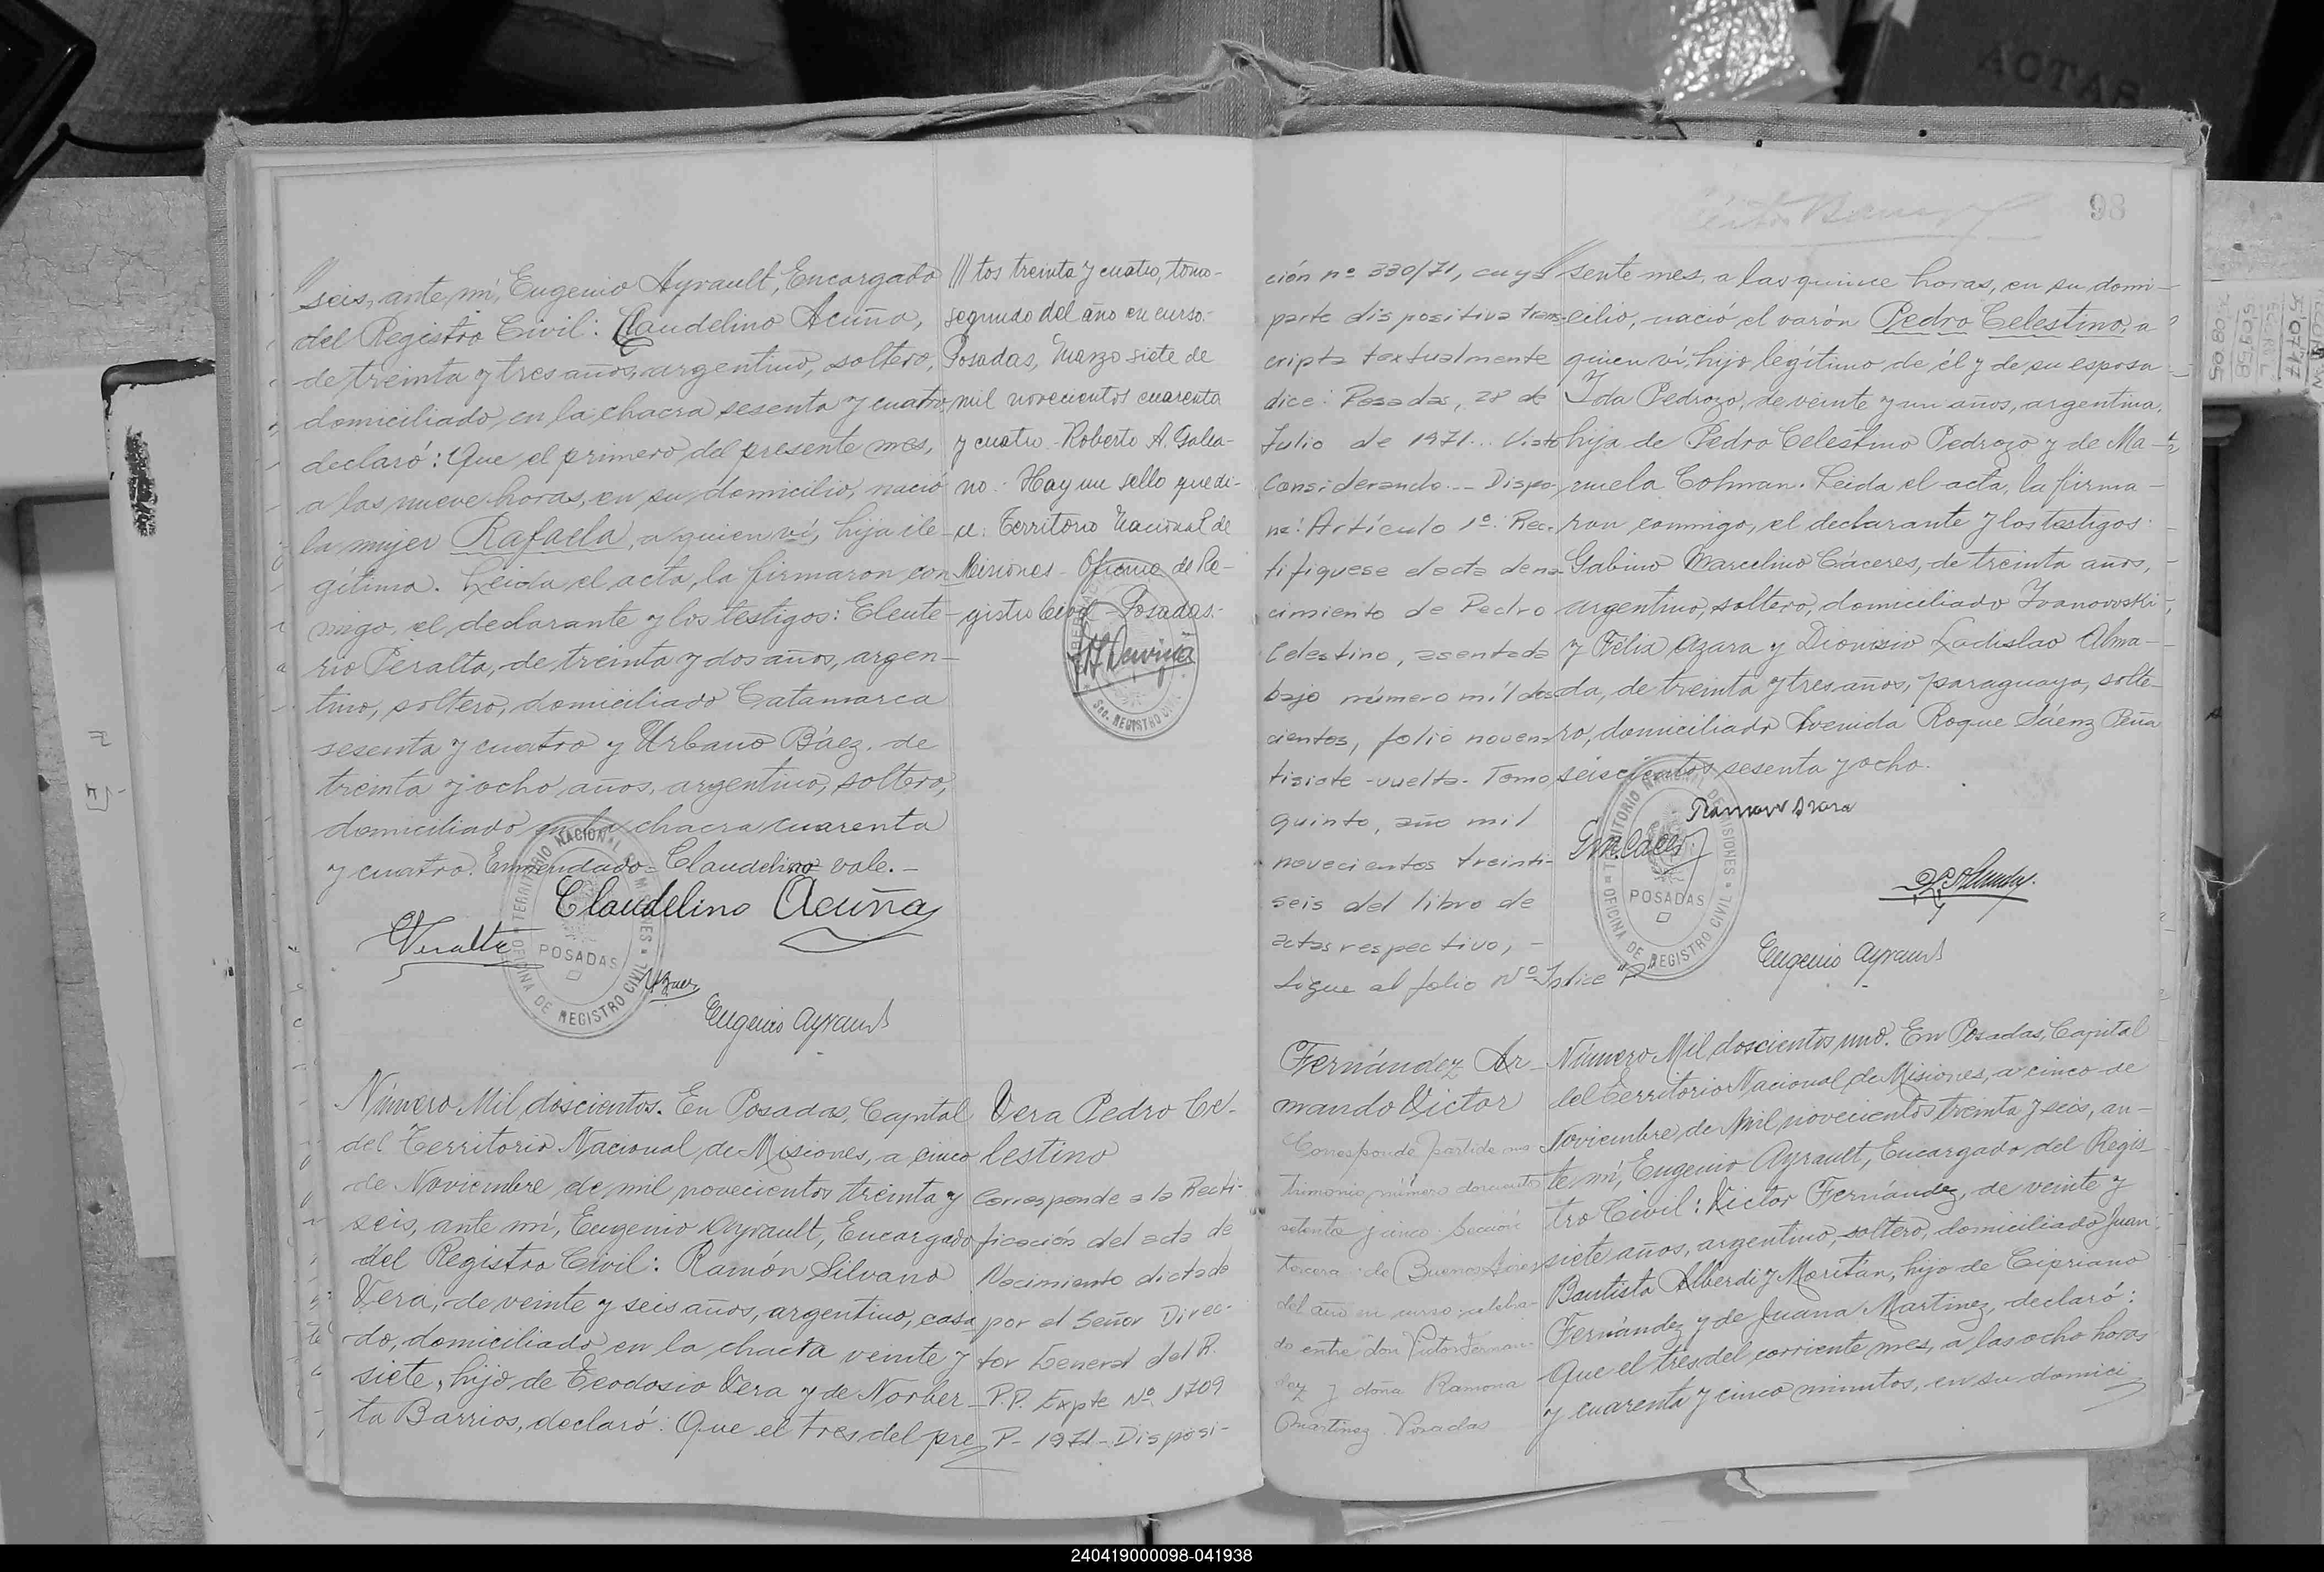 seis, ante mí, Eugenio Ayrault, Encargado
del Registro Civil: Claudelino Acuña,
de treinta y tres años, argentino, soltero,
domiciliado en la chacra sesenta y cuatro,
declaró: Que el primero del presente mes,
a las nueve horas, en su domicilio, nació
la mujer Rafaela, a quien ví, hija ile-
gítima. Leida el acta, la firmaron con-
migo, el declarante y los testigos: Eleute-
rio Peralta, de treinta y dos años, argen-
tino, soltero, domiciliado Catamarca
sesenta y cuatro y Urbano Báez, de
treinta y ocho años, argentino, soltero,
domiciliado en la chacra cuarenta
y cuatro. Enmendado = Claudelino vale.-
Claudelino Acuña
Peralta
UBaez
Eugenio Ayrault
TERRITORIO NACIONAL DE MISIONES
POSADAS
OFICINA DE REGISTRO CIVIL
/// tos treinta y cuatro, tomo-
segundo del año en curso.-
Posadas, Marzo siete de
mil novecientos cuarenta
y cuatro - Roberto A. Galea-
no.- Hay un sello que di-
ce: Territorio Nacional de
Misiones - Oficina de Re-
gistro Civil - Posadas.-
Sec. REGISTRO CIVIL
Número Mil doscientos. En Posadas, Capital
del Territorio Nacional de Misiones, a cinco
de Noviembre de mil novecientos treinta y
seis, ante mí, Eugenio Ayrault, Encargado
del Registro Civil: Ramón Silvano
Vera, de veinte y seis años, argentino, casa
do, domiciliado en la chacra veinte y
siete, hijo de Teodosio Vera y de Norber-
ta Barrios, declaró: Que el tres del pre
Vera Pedro Ce-
lestino
Corresponde a la Recti-
ficación del acta de
Nacimiento dictada
por el Señor Direc-
tor General del R.
P.P. Expte Nº 1709
P- 1971- Disposi-
98
ción nº 330/71, cuya
parte dispositiva trans-
cripta textualmente
dice: Posadas, 28 de
Julio de 1971... Visto
Considerando.-- Dispo-
ne: Artículo 1º: Rec-
tifiquese el acta de na-
cimiento de Pedro
Celestino, asentada
bajo número mil dos
cientos, folio noven-
tisiete -vuelta- Tomo
quinto, año mil
novecientos treinti-
seis del libro de
actas respectivo, -
Sigue al folio Nº Indice "P"
sente mes, a las quince horas, en su domi-
cilio, nació el varón Pedro Celestino, a
quien ví, hijo legítimo de él y de su esposa
Ida Pedrozo, de veinte y un años, argentina,
hija de Pedro Celestino Pedrozo y de Ma-
nuela Colman. Leida el acta, la firma-
ron conmigo, el declarante y los testigos:
Gabino Marcelino Cáceres, de treinta años,
argentino, soltero, domiciliado Ivanovski
y Félix Azara y Dionisio Ladislao Alma-
da, de treinta y tres años, paraguayo, solte-
ro, domiciliado Avenida Roque Sáenz Peña
seiscientos sesenta y ocho.
Eugenio Ayrault
TERRITORIO NACIONAL DE MISIONES
POSADAS
OFICINA DE REGISTRO CIVIL
Fernández Ar-
mando Victor
Corresponde partida ma
trimonio número doscientos
setenta y cinco Sección
tercera de Buenos Aires
del año en curso celebra-
do entre don Victor Fernan-
dez y doña Ramona
Martinez. Posadas
Número Mil doscientos uno. En Posadas, Capital
del Territorio Nacional de Misiones, a cinco de
Noviembre de Mil novecientos treinta y seis, an-
te mí, Eugenio Ayrault, Encargado del Regis-
tro Civil: Victor Fernández, de veinte y
siete años, argentino, soltero, domiciliado Juan
Bautista Alberdi y Moritán, hijo de Cipriano
Fernández y de Juana Martinez, declaró:
Que el tres del corriente mes, a las ocho horas
y cuarenta y cinco minutos, en su domici
240419000098-041938